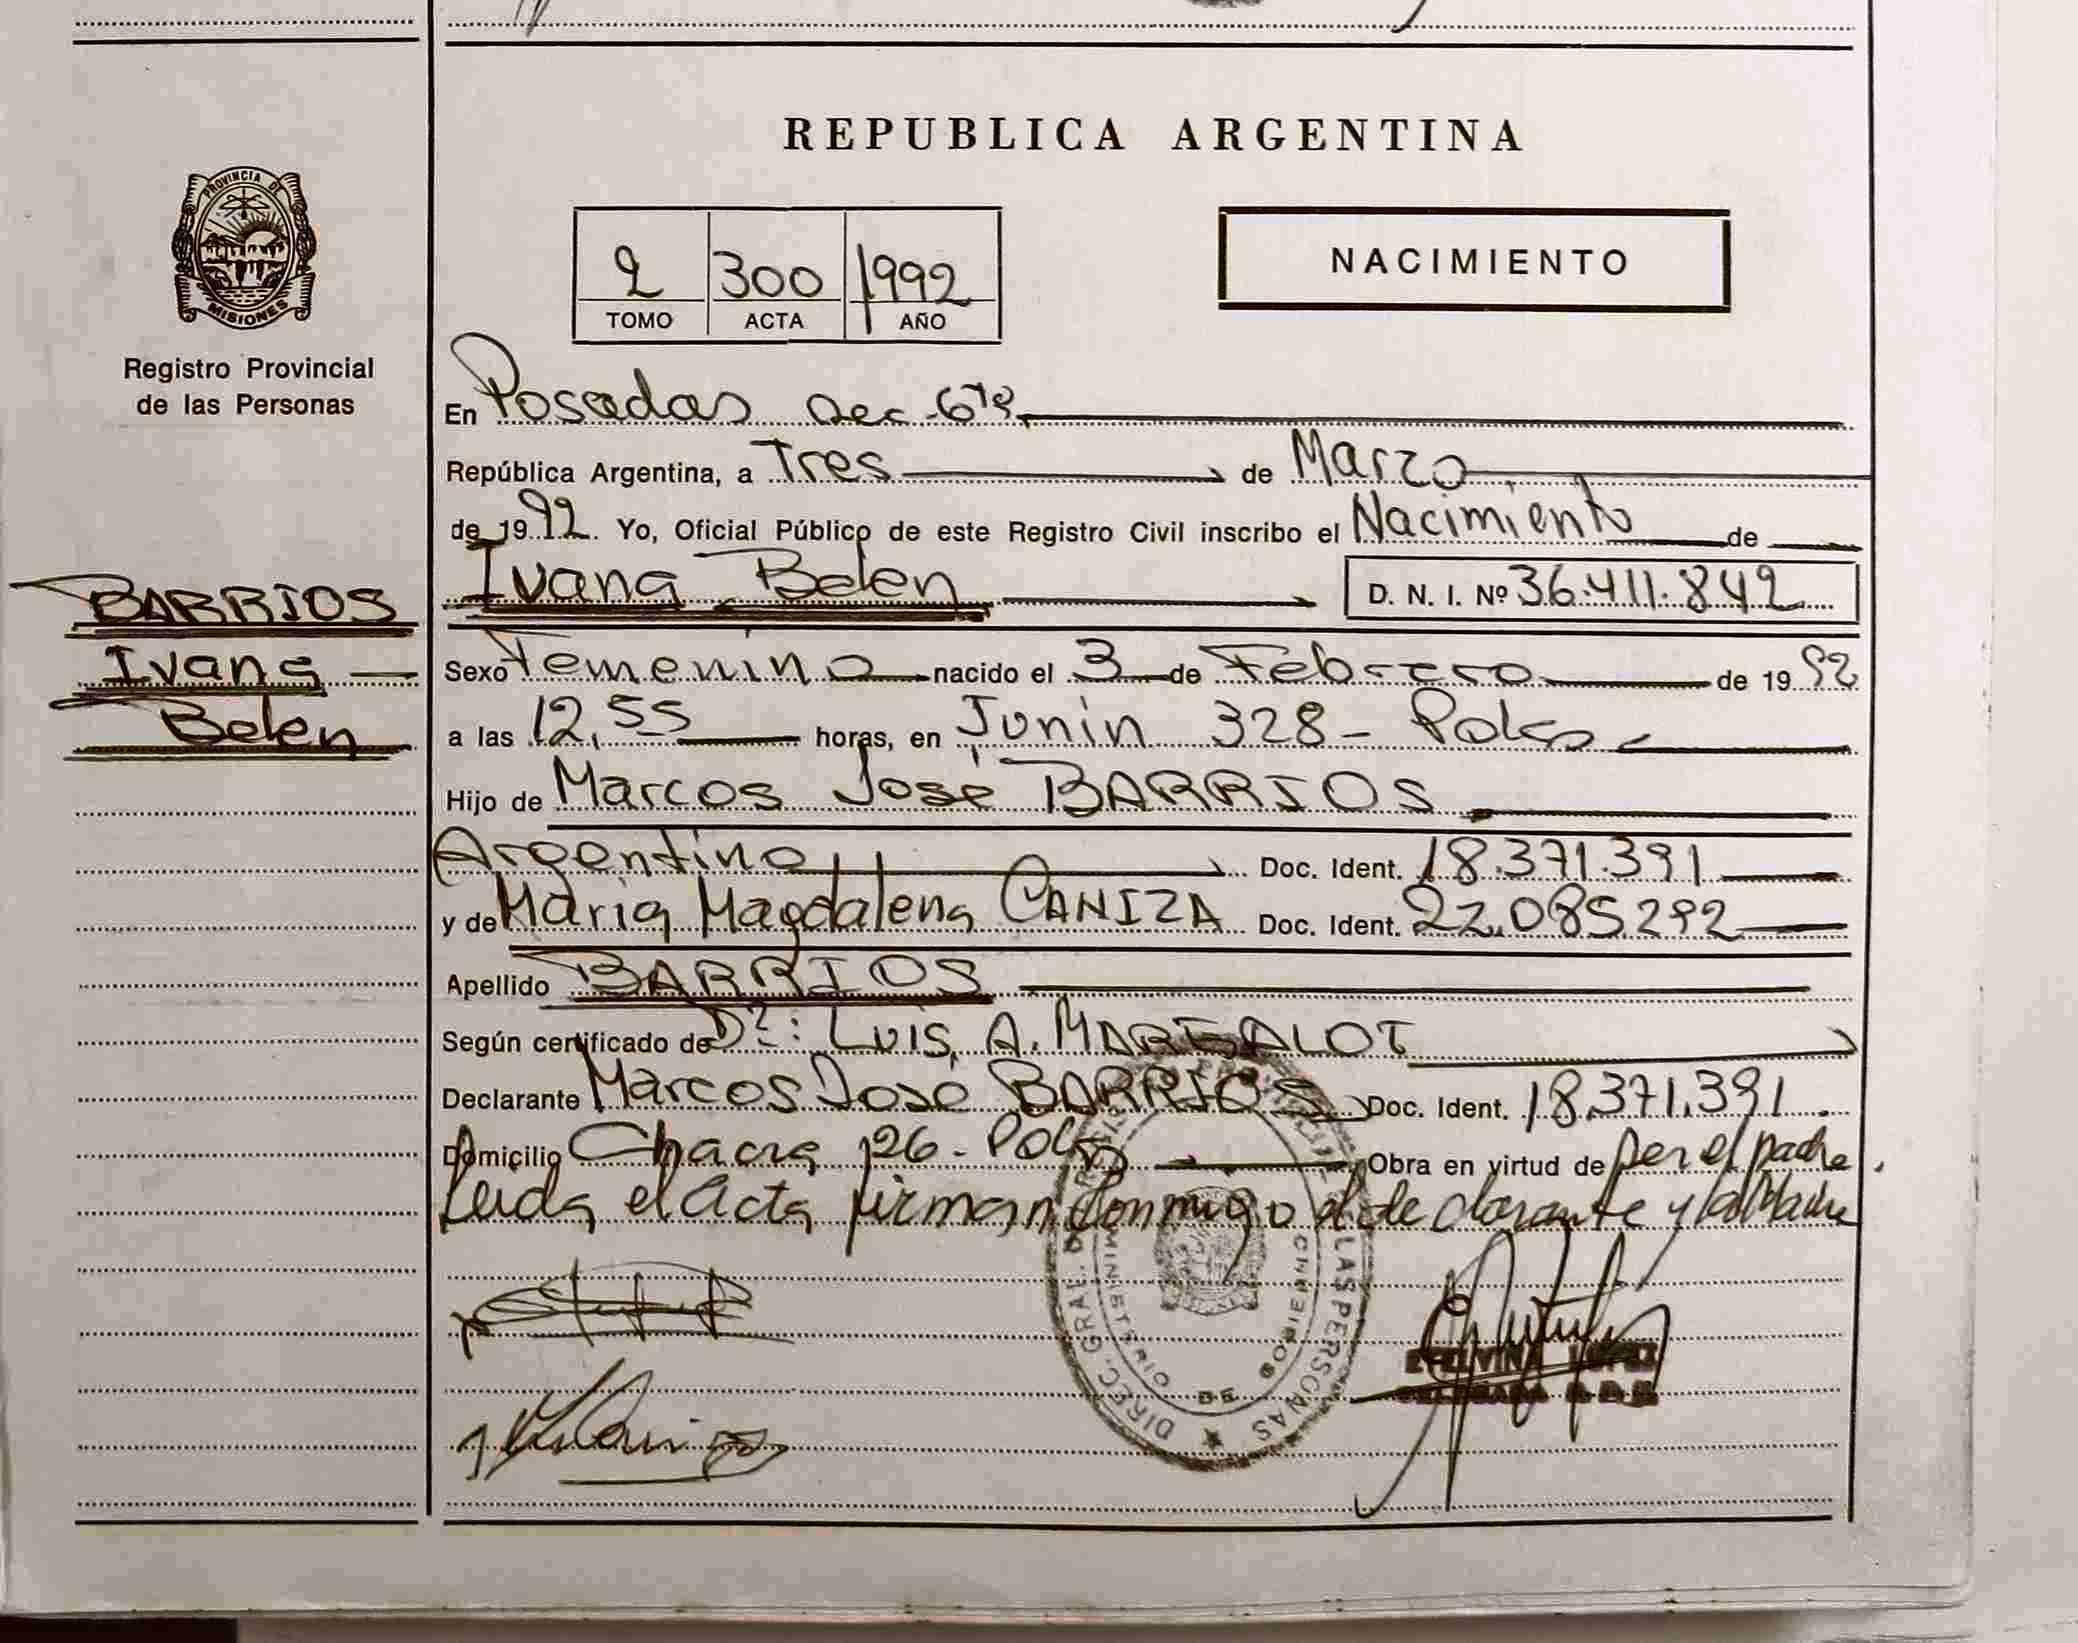 PROVINCIA DE
MISIONES
Registro Provincial
de las Personas
BARRIOS
Ivana
Belen
REPUBLICA ARGENTINA
2 300 1992
TOMO ACTA AÑO
NACIMIENTO
En Posadas Sec. 6ta
República Argentina, a Tres de Marzo
de 1992. Yo, Oficial Público de este Registro Civil inscribo el Nacimiento de
Ivana Belen D. N. I. Nº 36.411.842
Sexo Femenino nacido el 3 de Febrero de 1992
a las 12,55 horas, en Junin 328 - Pdas
Hijo de Marcos José BARRIOS
Argentino Doc. Ident. 18.371.391
y de Maria Magdalena CANIZA Doc. Ident. 22.085.292
Apellido BARRIOS
Según certificado de Dr: Luis A. MARGALOT
Declarante Marcos José BARRIOS Doc. Ident. 18.371.391
Domicilio Chacra 126 - Pdas Obra en virtud de ser el padre.
Leida el acta firman conmigo el declarante y la Madre
DIREC. GRAL. DE LAS PERSONAS
MINISTERIO DE GOBIERNO
LOPEZ